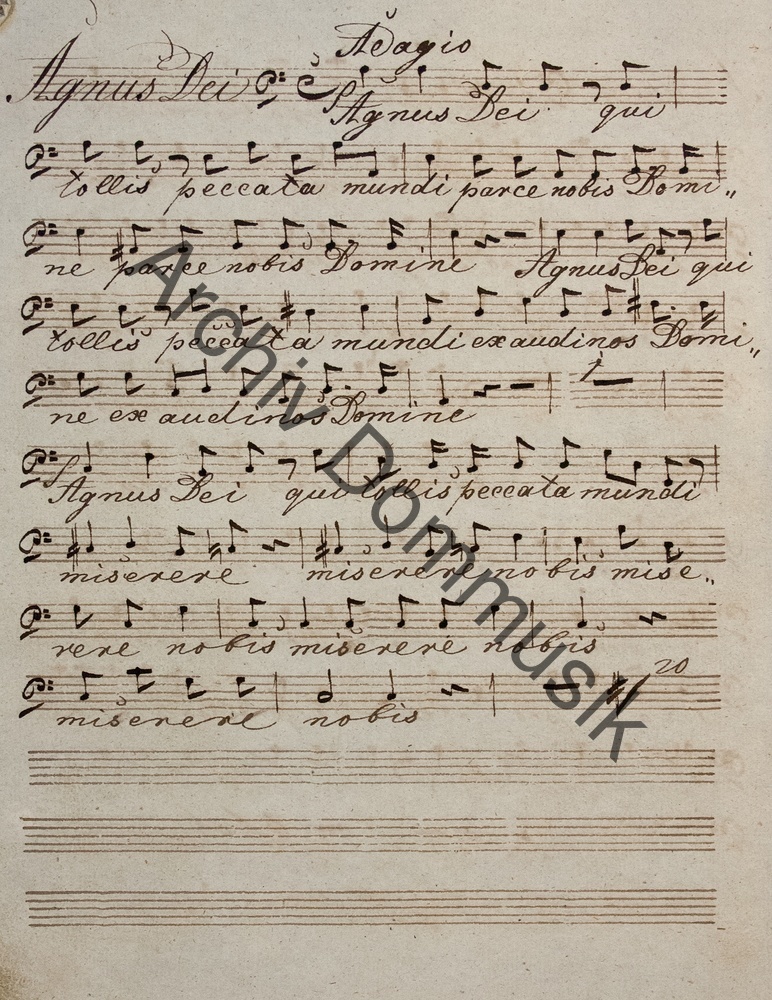 Adagio
Agnus Dei
Agnus Dei qui
tollis peccata mundi parce nobis Domi„
ne parce nobis Domine Agnus Dei qui
tollis peccata mundi exaudi nos Domi„
ne exaudi nos Domine
1
Agnus Dei qui tollis peccata mundi
miserere miserere nobis mise„
rere nobis miserere nobis
20
miserere nobis
Archiv Dommusik